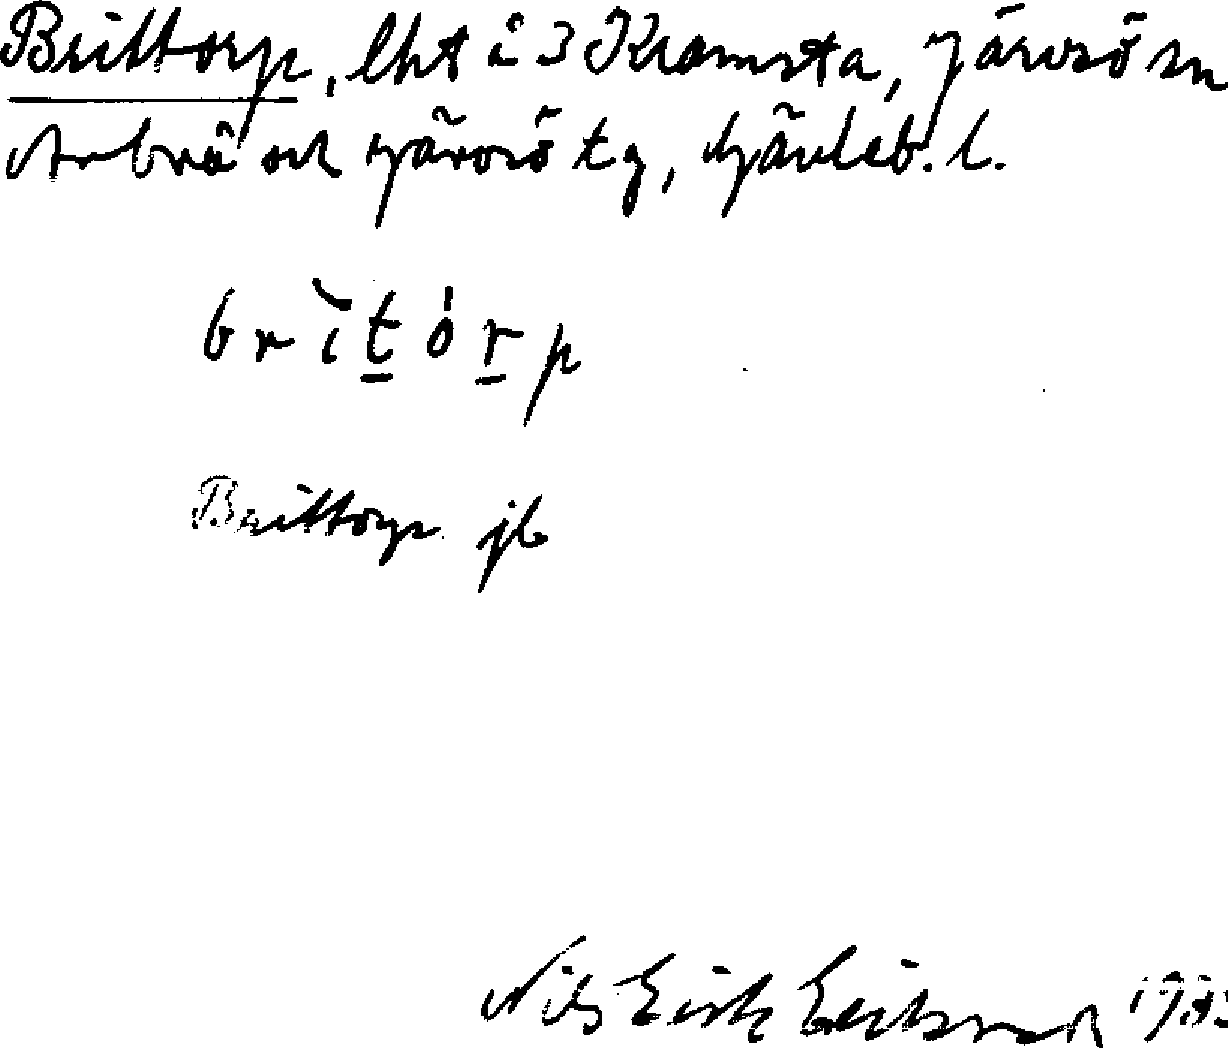 Brittorp, lht i 3 Kramsta, Järvsö sn
Arbrå och Järvsö tg, Gävleb. l.
brìtórp
Brittorp jb
Nils Erik Eriksson